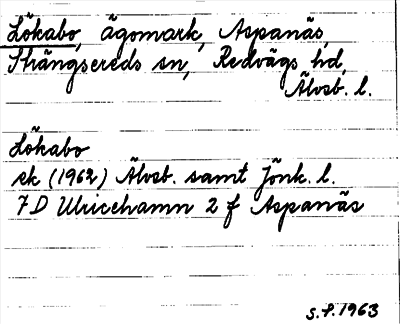 Lökabo, ägomark, Aspanäs,
Strängsereds sn, Redvägs hd,
Älvsb. l.
Lökabo
ek (1962) Älvsb. samt Jönk. l.
7D Ulricehamn 2 f Aspanäs
S.P. 1963